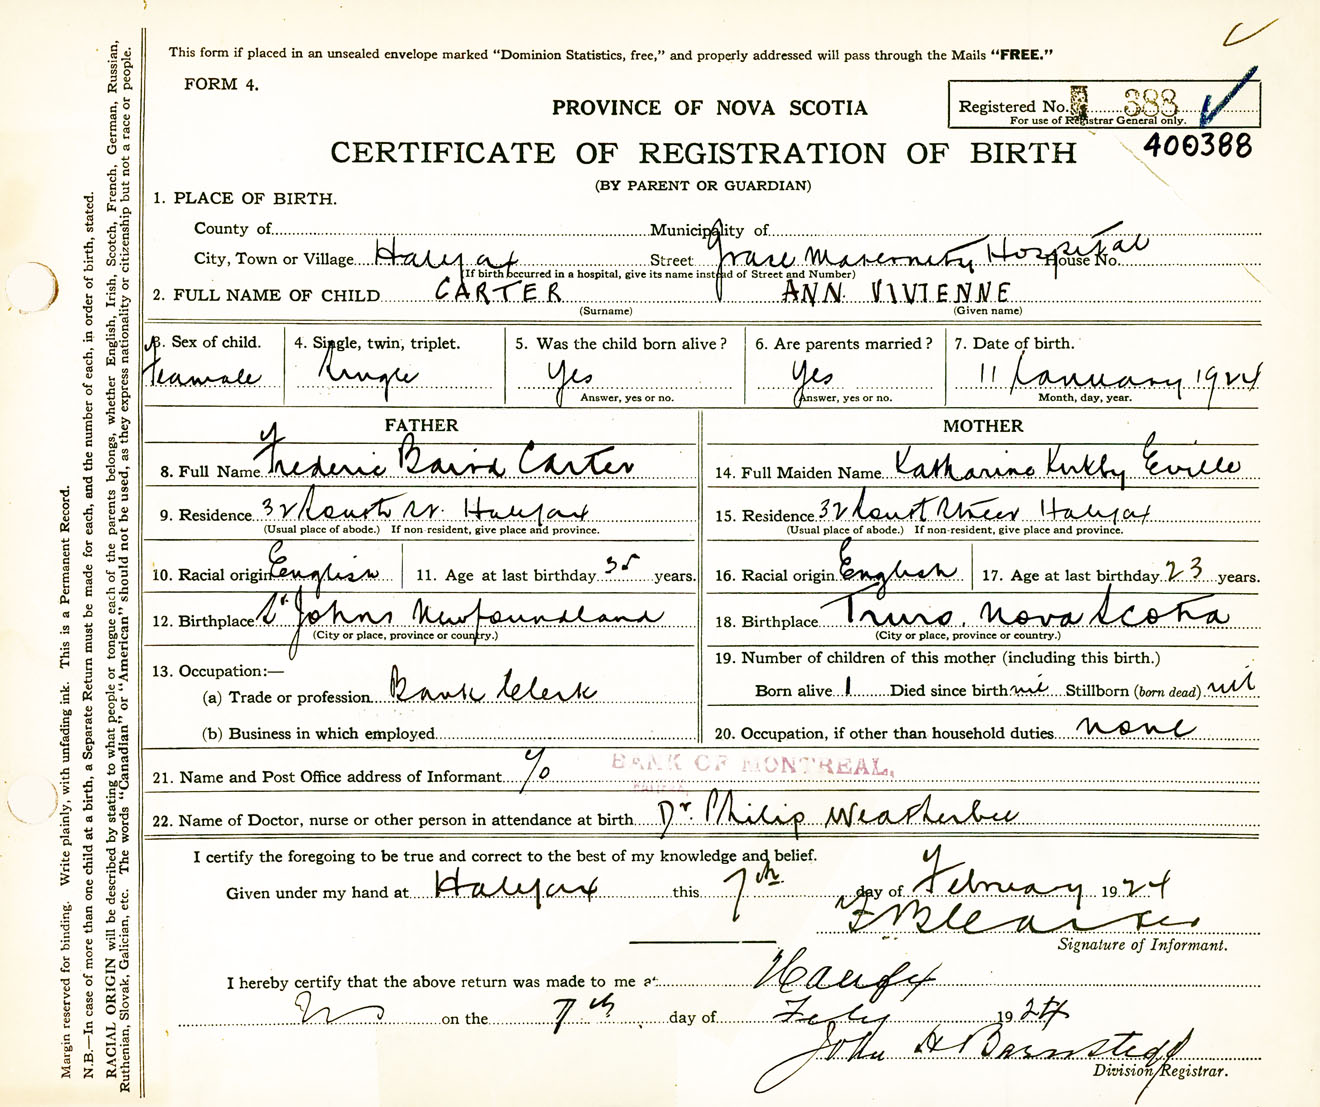 This form if placed in an unsealed envelope marked "Dominion Statistics, free," and properly addressed will pass through the Mails "FREE."
FORM 4.
PROVINCE OF NOVA SCOTIA
Registered No. 388
For use of Registrar General only.
400388
CERTIFICATE OF REGISTRATION OF BIRTH
(BY PARENT OR GUARDIAN)
1. PLACE OF BIRTH.
County of Municipality of
City, Town or Village Halifax Street Grace Maternity Hospital House No.
(If birth occurred in a hospital, give its name instead of Street and Number)
2. FULL NAME OF CHILD CARTER ANN VIVIENNE
(Surname) (Given name)
3. Sex of child. 4. Single, twin, triplet. 5. Was the child born alive? 6. Are parents married? 7. Date of birth.
Feamale Single Yes Yes 11 January 1924
Answer, yes or no. Answer, yes or no. Month, day, year.
FATHER MOTHER
8. Full Name Frederic Baird Carter 14. Full Maiden Name Katharine Kirkby Eville
9. Residence 32 South St. Halifax 15. Residence 32 South Street Halifax
(Usual place of abode.) If non-resident, give place and province. (Usual place of abode.) If non-resident, give place and province.
10. Racial origin English 11. Age at last birthday 35 years. 16. Racial origin English 17. Age at last birthday 23 years.
12. Birthplace St. Johns Newfoundland 18. Birthplace Truro, Nova Scotia
(City or place, province or country.) (City or place, province or country.)
13. Occupation:— 19. Number of children of this mother (including this birth.)
(a) Trade or profession Bank Clerk Born alive 1 Died since birth nil Stillborn (born dead) nil
(b) Business in which employed 20. Occupation, if other than household duties none
21. Name and Post Office address of Informant c/o BANK OF MONTREAL,
22. Name of Doctor, nurse or other person in attendance at birth Dr. Philip Weatherbee
I certify the foregoing to be true and correct to the best of my knowledge and belief.
Given under my hand at Halifax this 7th day of February 1924
F B Carter
Signature of Informant.
I hereby certify that the above return was made to me at Halifax
N S on the 7th day of Feby 1924
John A Barnstead
Division Registrar.
Margin reserved for binding. Write plainly, with unfading ink. This is a Permanent Record.
N.B.—In case of more than one child at a birth, a Separate Return must be made for each, and the number of each, in order of birth, stated.
RACIAL ORIGIN will be described by stating to what people or tongue each of the parents belongs, whether English, Irish, Scotch, French, German, Russian,
Ruthenian, Slovak, Galician, etc. The words "Canadian" or "American" should not be used, as they express nationality or citizenship but not a race or people.